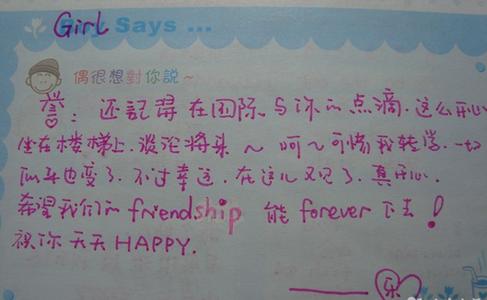 Girl Says ...
偶很想對你說~
誉: 还記得在国际与你的点滴. 这么开心
坐在楼梯上. 谈论将来~ 呵~ 可惜我转学. 一切
似乎也变了. 不过幸运. 在这儿又见了. 真开心.
希望我们的 friendship 能 forever 下去!
祝你天天HAPPY.
乐